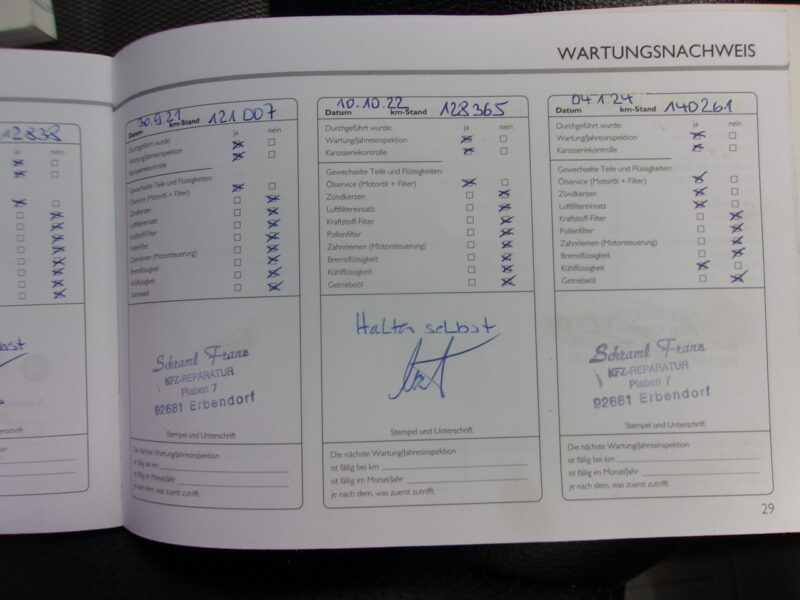 WARTUNGSNACHWEIS
12838
ja nein
bst
30.9.21 121007
Datum km-Stand
Durchgeführt wurde: ja nein
Wartung/Jahresinspektion
Karosseriekontrolle
Gewechselte Teile und Flüssigkeiten:
Ölservice (Motoröl + Filter)
Zündkerzen
Luftfiltereinsatz
Kraftstoff-Filter
Pollenfilter
Zahnriemen (Motorsteuerung)
Bremsflüssigkeit
Kühlflüssigkeit
Getriebeöl
Schraml Franz
KFZ-REPARATUR
Plaben 7
92681 Erbendorf
Stempel und Unterschrift
Die nächste Wartung/Jahresinspektion
ist fällig bei km
ist fällig im Monat/Jahr
je nach dem, was zuerst zutrifft.
10.10.22 128365
Datum km-Stand
Durchgeführt wurde: ja nein
Wartung/Jahresinspektion
Karosseriekontrolle
Gewechselte Teile und Flüssigkeiten:
Ölservice (Motoröl + Filter)
Zündkerzen
Luftfiltereinsatz
Kraftstoff-Filter
Pollenfilter
Zahnriemen (Motorsteuerung)
Bremsflüssigkeit
Kühlflüssigkeit
Getriebeöl
Halter selbst
Stempel und Unterschrift
Die nächste Wartung/Jahresinspektion
ist fällig bei km
ist fällig im Monat/Jahr
je nach dem, was zuerst zutrifft.
04.1.24 140261
Datum km-Stand
Durchgeführt wurde: ja nein
Wartung/Jahresinspektion
Karosseriekontrolle
Gewechselte Teile und Flüssigkeiten:
Ölservice (Motoröl + Filter)
Zündkerzen
Luftfiltereinsatz
Kraftstoff-Filter
Pollenfilter
Zahnriemen (Motorsteuerung)
Bremsflüssigkeit
Kühlflüssigkeit
Getriebeöl
Schraml Franz
KFZ-REPARATUR
Plaben 7
92681 Erbendorf
Stempel und Unterschrift
Die nächste Wartung/Jahresinspektion
ist fällig bei km
ist fällig im Monat/Jahr
je nach dem, was zuerst zutrifft.
29